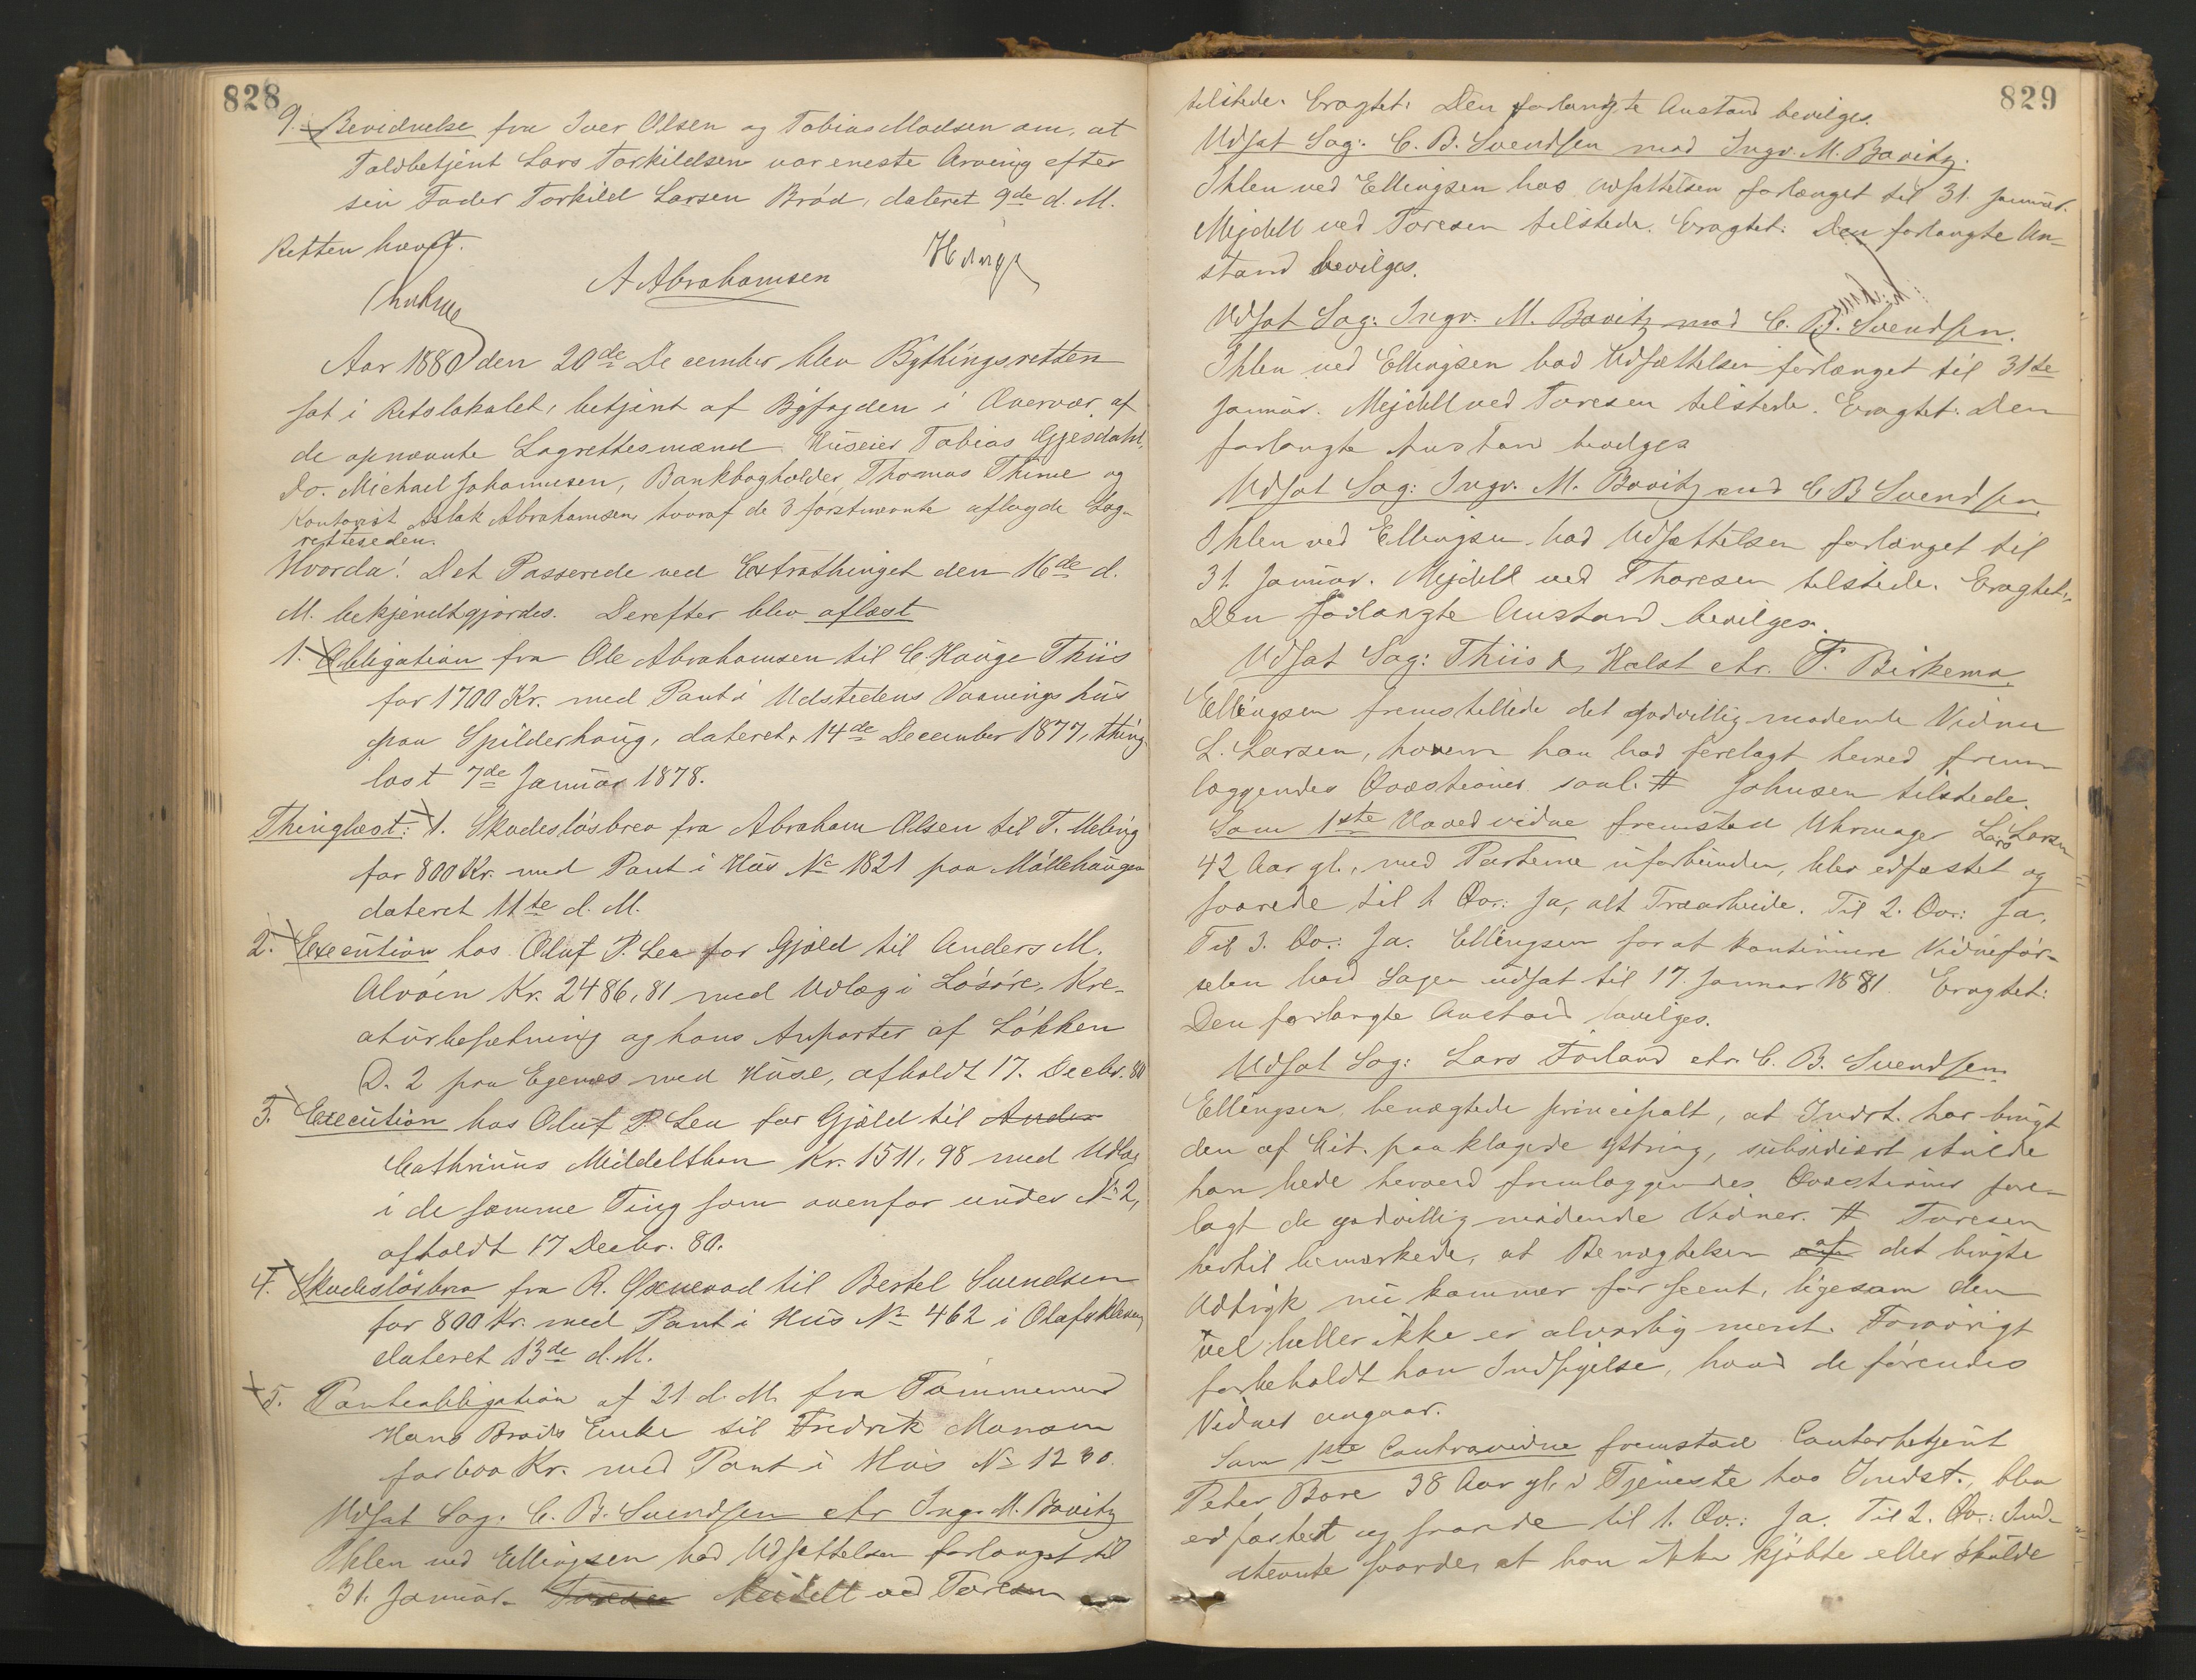 828
9. Bevidnelse fra Iver Olsen og Tobias Madsen om, at
Toldbetjent Lars Torkildsen var eneste Arving efter
sin Fader Torkild Larsen Bröd, dateret 9de d. M.
Retten hævet.
A Abrahamsen
Aar 1880 den 20de December blev Bythingsretten
sat i Retslokalet, betjent af Byfogden i Overvær af
de opnævnte Lagrettesmænd Huseier Tobias Gjesdahl,
Do. Michael Johannesen, Bankbogholder Thomas Thime og
Kontorist Aslak Abrahamsen, hvoraf de 3 förstnævnte aflagde Lag-
retteseden.
Hvorda! Det Passerede ved Extrathinget den 16de d.
M. bekjendtgjordes. Derefter blev aflæst
1. Obligation fra Ole Abrahamsen til C. Hauge Thiis
for 1700 Kr. med Pant i Udstedens Vaanings hus
paa Spilderhaug, dateret 14de December 1877, thing
læst 7de Januar 1878.
Thinglæst: 1. Skadeslösbrev fra Abraham Olsen til T. Meling
for 800 Kr. med Pant i Hus No 1821 paa Möllehaugen
dateret 11te d. M.
2. Execution hos Oluf P. Lea for Gjæld til Anders M.
Alvöen Kr. 2486,81 med Udlæg i Lösöre, Kre-
aturbesætning og hans Anparter af Lökken
D. 2 paa Egenes med Huse, afholdt 17. Decbr. 80
3. Execution hos Oluf P Lea for Gjæld til Anders
Cathrinus Mildelthon Kr. 1511,98 med Udlæg
i de samme Ting som ovenfor under No 2,
afholdt 17 Decbr. 80.
4. Skadeslösbrev fra R. Grænevad til Bertel Svendsen
for 800 Kr. med Pant i Hus No 462 i Olafskleven,
dateret 13de d. M.
5. Panteobligation af 21 d. M. fra Tömmermd
Hans Enke til Fredrik Monsen
for 600 Kr. med Pant i Hus No 1230.
Udsat Sag: C. B. Svendsen ctr Ingv. M. Bovitz
Ihlen ved Ellingsen bad Udsættelsen forlænget til
31. Januar. Toresen Mejdell ved Toresen
829
tilstede. Eragtet: Den forlangte Anstand bevilges.
Udsat Sag: C. B. Svendsen mod Ingv. M. Bovitz.
Ihlen ved Ellingsen bad Udsættelsen forlænget til 31. Januar.
Mejdell ved Toresen tilstede. Eragtet: Den forlangte An-
stand bevilges.
Udsat Sag: Ingv. M. Bovitz mod C. B. Svendsen.
Ihlen ved Ellingsen bad Udsættelsen forlænget til 31te
Januar. Mejdell ved Toresen tilstede. Eragtet: Den
forlangte Anstand bevilges
Udsat Sag: Ingv. M. Bovitz mod C B Svendsen.
Ihlen ved Ellingsen bad Udsættelsen forlænget til
31. Januar. Mejdell ved Thoresen tilstede. Eragtet:
Den forlangte Anstand bevilges.
Udsat Sag: Thiis & Holst ctr. T. Birkemo.
Ellingsen fremstillede det godvillig mödende Vidne
L. Larsen, hvem han bad forelagt herved frem
læggendes Qvæstioner saal. # Johnsen tilstede.
Som 1ste Hovedvidne fremstod Uhrmager Lars Larsen
42 Aar gl., med Parterne uforbunden, blev edfæstet og
svarede til 1 Qv.: Ja, alt Træarbeide. Til 2. Qv.: Ja.
Til 3. Qv.: Ja. Ellingsen for at kontinuere Vidneför-
selen bad Sagen udsat til 17. Januar 1881. Eragtet:
Den forlangte Anstand bevilges.
Udsat Sag: Lars Forland ctr C. B. Svendsen.
Ellingsen benægtede principalt, at Indst. har brugt
den af Cit. paaklagede yttring, subsidiært
han bede herved fremlæggendes Qvæstioner fore-
lagt de godvillig mödende Vidner. # Toresen
hertil bemærkede, at Benægtelsen af det brugte
Udtryk nu kommer for seent, ligesom den
vel heller ikke er alvorlig ment. Forövrigt
forbeholdt han Indsigelse, hvad de förendes
Vidner angaar.
Som 1ste Contravidne fremstod Contorbetjent
Peter Bore 38 Aar gl. i Tjeneste hos Indst., blev
edfæstet og svarede til 1. Qv.: Ja. Til 2. Qv.: Ind-
stevnte svarede, at han ikke kjöbte eller skulde